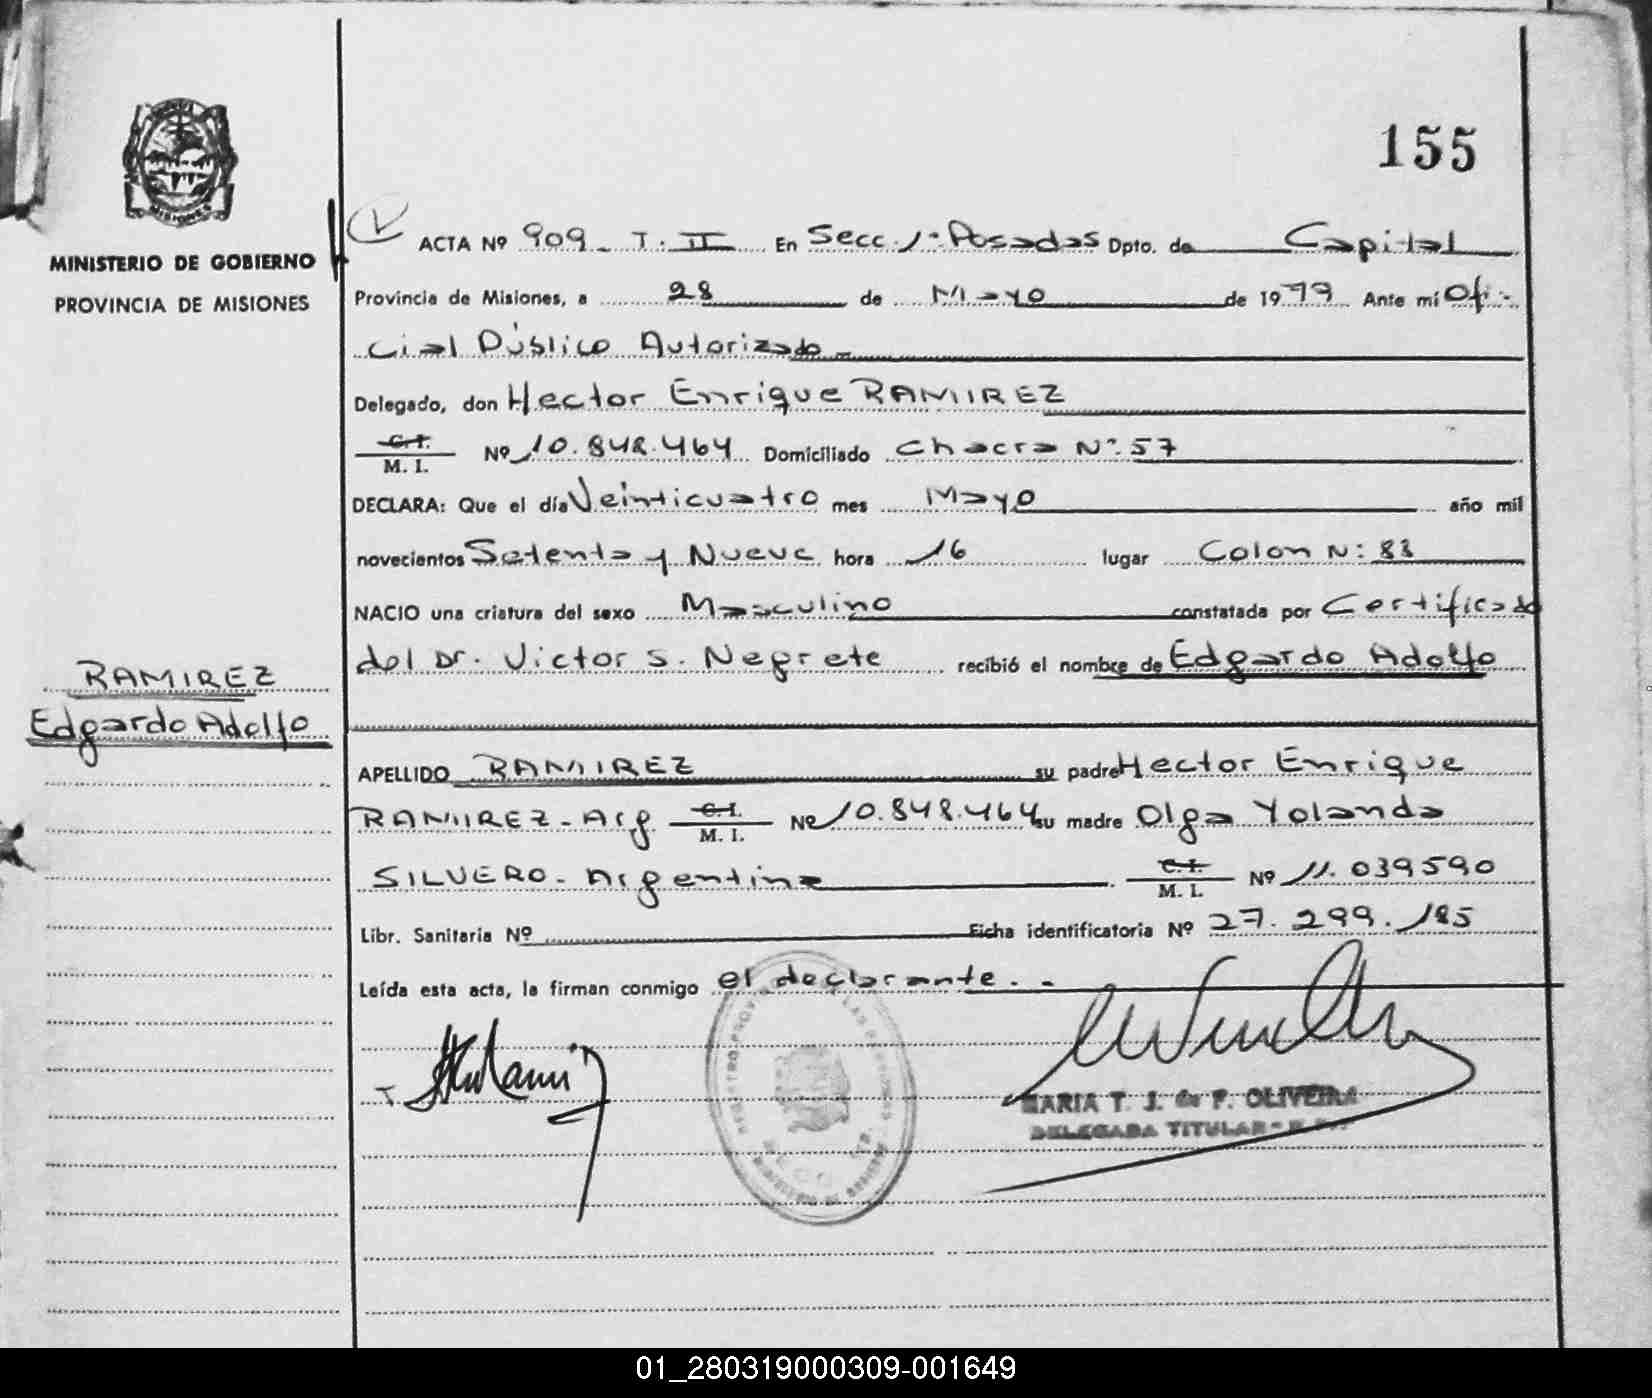 155
MISIONES
MINISTERIO DE GOBIERNO
PROVINCIA DE MISIONES
ACTA Nº 909 - T. II En Secc. 1ª Posadas Dpto. de Capital
Provincia de Misiones, a 28 de Mayo de 1979 Ante mí Ofi-
cial Público Autorizado -
Delegado, don Hector Enrique RAMIREZ
C.I.
M. I. Nº 10.848.464 Domiciliado Chacra Nº 57
DECLARA: Que el día Veinticuatro mes Mayo año mil
novecientos Setenta y Nueve hora 16 lugar Colon Nº 83
NACIO una criatura del sexo Masculino constatada por Certificado
del Dr. Victor S. Negrete recibió el nombre de Edgardo Adolfo
RAMIREZ
Edgardo Adolfo
APELLIDO RAMIREZ su padre Hector Enrique
RAMIREZ - Arg C.I.
M. I. Nº 10.848.464 su madre Olga Yolanda
SILVERO - Argentina C.I.
M. I. Nº 11.039590
Libr. Sanitaria Nº Ficha identificatoria Nº 27.299.185
Leída esta acta, la firman conmigo el declarante. -
MARIA T. J. de P. OLIVEIRA
DELEGADA TITULAR
01_280319000309-001649